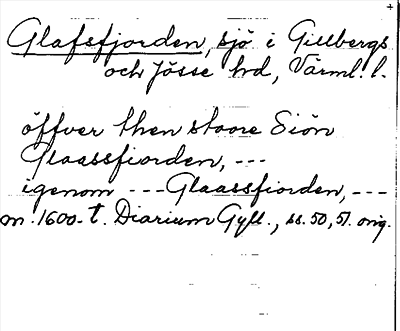 Glafsfjorden, sjö i Gillbergs
och Jösse hd, Värml. l.
öffver then stoore Siön
Glaassfiorden, ---
igenom --- Glaassfiorden, ---
m. 1600-t. Diarium Gyll., ss. 50, 51. orig.